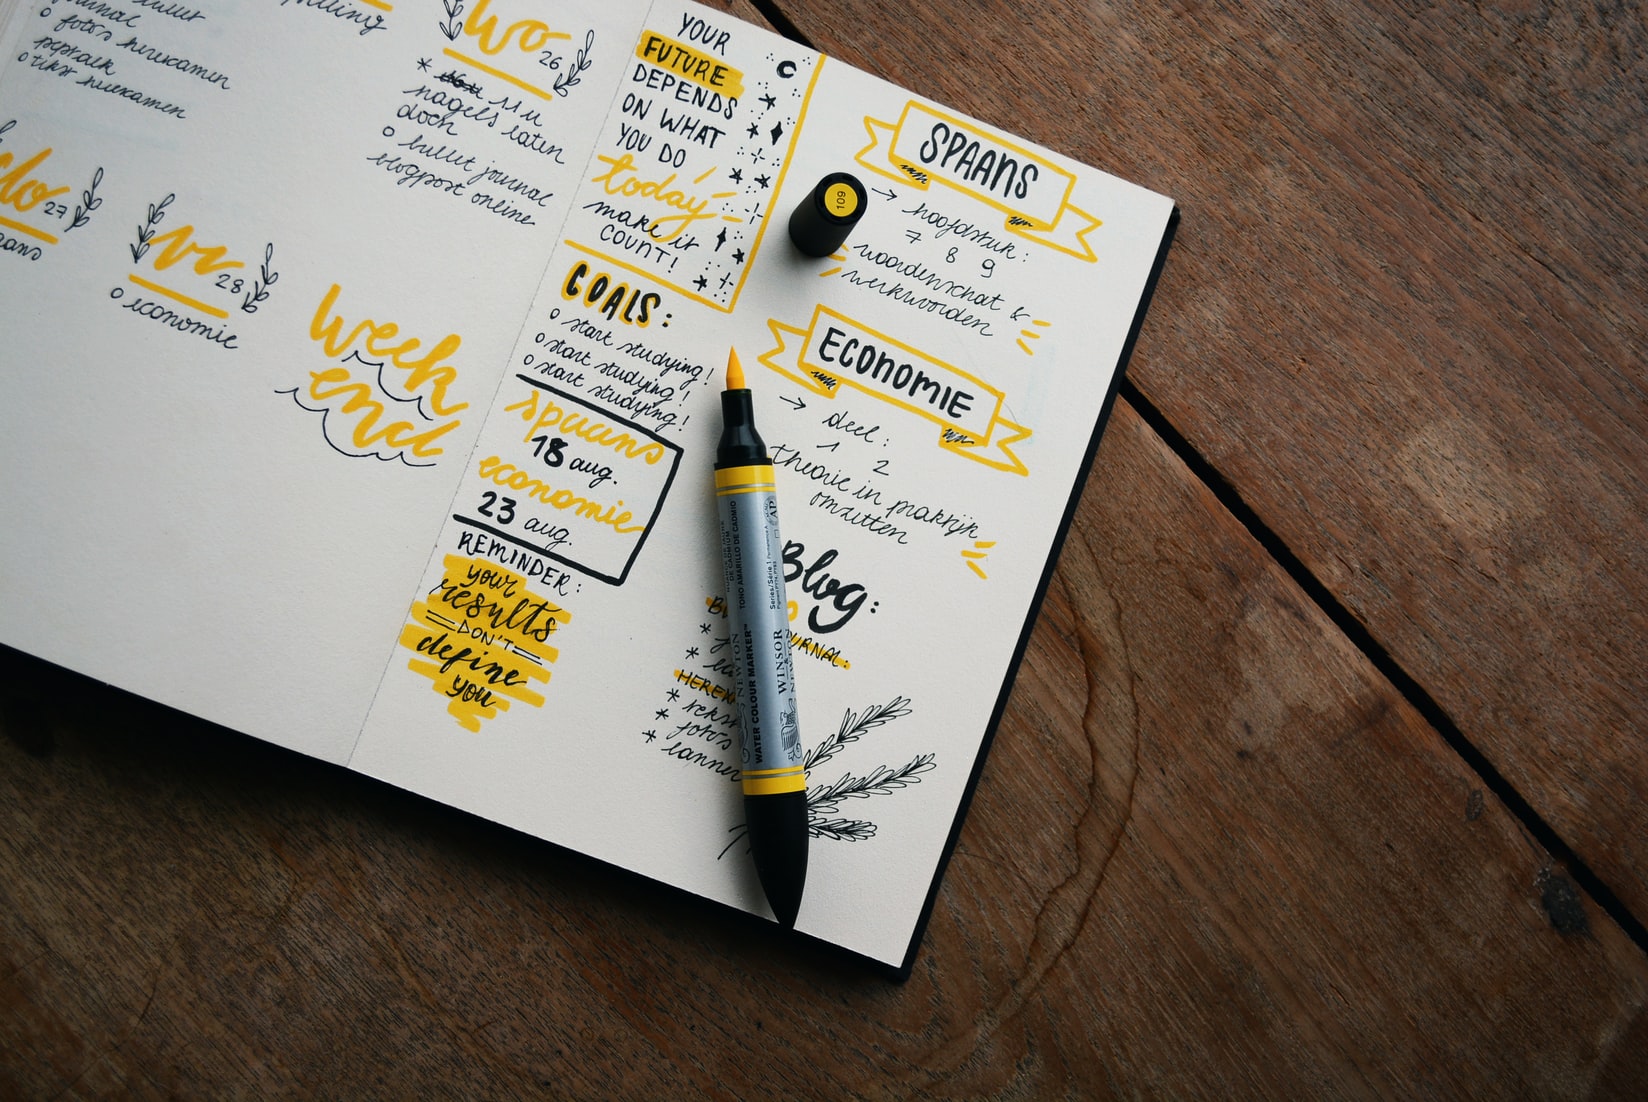 bullet
journal
o foto's herexamen
peptalk
o tekst herexamen
wo 26
* 11 u
nagels laten
doen
o bullet journal
blogpost online
do 27
vr 28
o economie
week
end
YOUR
FUTURE
DEPENDS
ON WHAT
YOU DO
today
make it
COUNT!
GOALS:
o start studying!
o start studying!
o start studying!
spaans
18 aug.
economie
23 aug.
REMINDER:
your
results
DON'T
define
you
SPAANS
→ hoofdstuk:
7 8 9
woordenschat &
werkwoorden
ECONOMIE
→ deel:
1 2
theorie in praktijk
omzetten
Blog:
*
*
*
* foto's
*
109
WATER COLOUR MARKER™
WINSOR
& NEWTON
Series/Série 1
AP